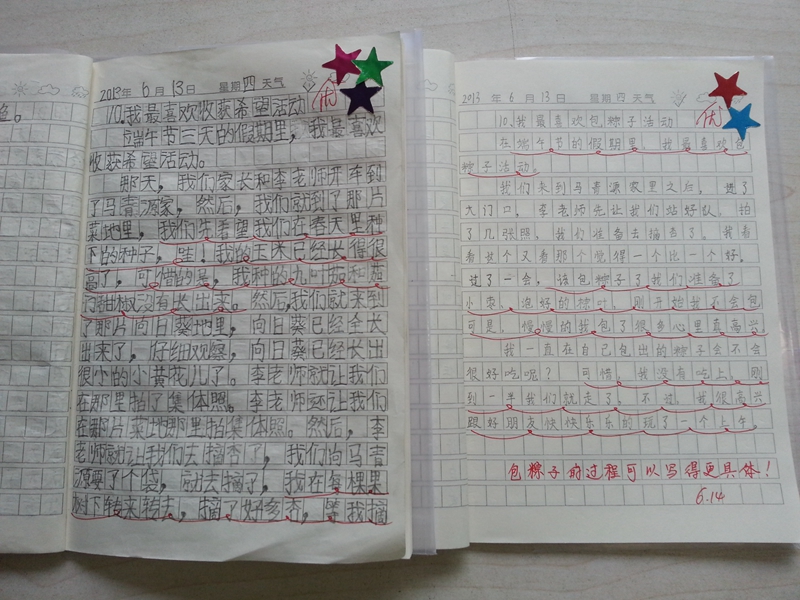 2013年 6月 13日 星期四 天气
优
10.我最喜欢收获希望活动
端午节三天的假期里，我最喜欢
收获希望活动。
那天，我们家长和李老师开车到
了马青源家，然后，我们就到了那片
菜地里，我们先看望我们在春天里种
下的种子，哇！我的玉米已经长得很
高了，可惜的是，我种的九叶茄和苦
没有长出来。然后，我们就来到
了那片向日葵地里，向日葵已经全长
出来了，仔细观察，向日葵已经长出
很小的小黄花儿了。李老师就让我们
在那里拍了集体照。李老师还让我们
在那片菜地那里拍集体照。然后，李
老师就让我们去摘杏了，我们向马青
源要了个袋，就去摘了，我在每棵果
树下转来转去，摘了好多杏，等我摘
2013年 6月 13日 星期四 天气
优
10.我最喜欢包粽子活动
在端午节的假期里，我最喜欢包
粽子活动。
我们来到马青源家里之后，进了
大门口，李老师先让我们站好队，拍
了几张照，我们准备去摘杏了。我看
看这个又看那个觉得一个比一个好。
过了一会，该包粽子了我们准备了
小枣，泡好的粽叶。刚开始我不会包
可是，慢慢的我包了很多心里真高兴
我一直在自己包出的粽子会不会
很好吃呢？可惜，我没有吃上，刚
到一半我们就走了。不过，我很高兴
跟好朋友快快乐乐的玩了一个上午。
包粽子的过程可以写得更具体！
6.14